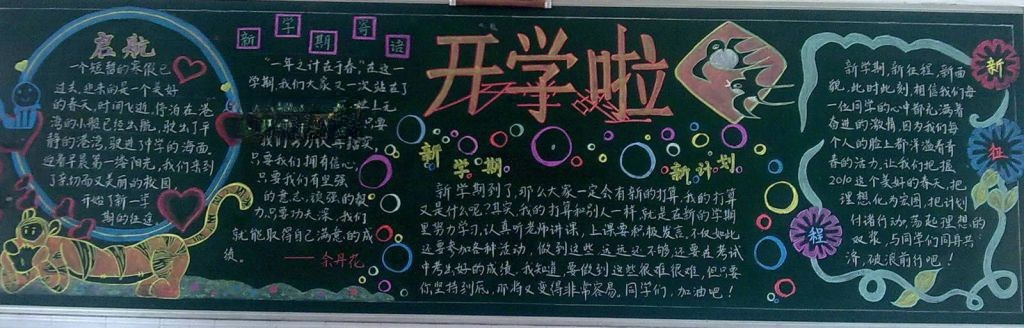 启航
一个短暂的寒假已
过去,迎来的是一个美好
的春天,时间飞逝,停泊在港
湾的小船已经出航,驶出了平
静的港湾,驶进浩瀚的海面,
迎着早晨第一缕阳光,我们来到
了亲切而又美丽的校园,
开始了新一学
期的征途
新学期寄语
"一年之计在于春,"在这一
学期,我们大家又一次站在了
只要
我们
只要我们拥有信心,
只要我们有坚强
的意志,顽强的毅
力,只要功夫深,我们
就能取得自己满意的成
绩。
——余丹花
开学啦
新学期
新计划
新学期到了,那么大家一定会有新的打算,我的打算
又是什么呢?其实,我的打算和别人一样,就是在新的学期
里努力学习,认真听老师讲课,上课要积极发言,不仅如此
还要参加各种活动,做到这些远远还不够,还要在考试
中考出好的成绩,我知道,要做到这些很难很难,但只要
你坚持到底,那将又变得非常容易。同学们,加油吧!
新学期,新征程,新面
貌,此时此刻,相信我们每
一位同学的心中都充满着
奋进的激情,因为我们每
个人的脸上都洋溢着青
春的活力,让我们把握
2010这个美好的春天,把
理想化为宏图,把计划
付诸行动,荡起理想的
双桨,与同学们同舟共
济,破浪前行吧!
新
征
程